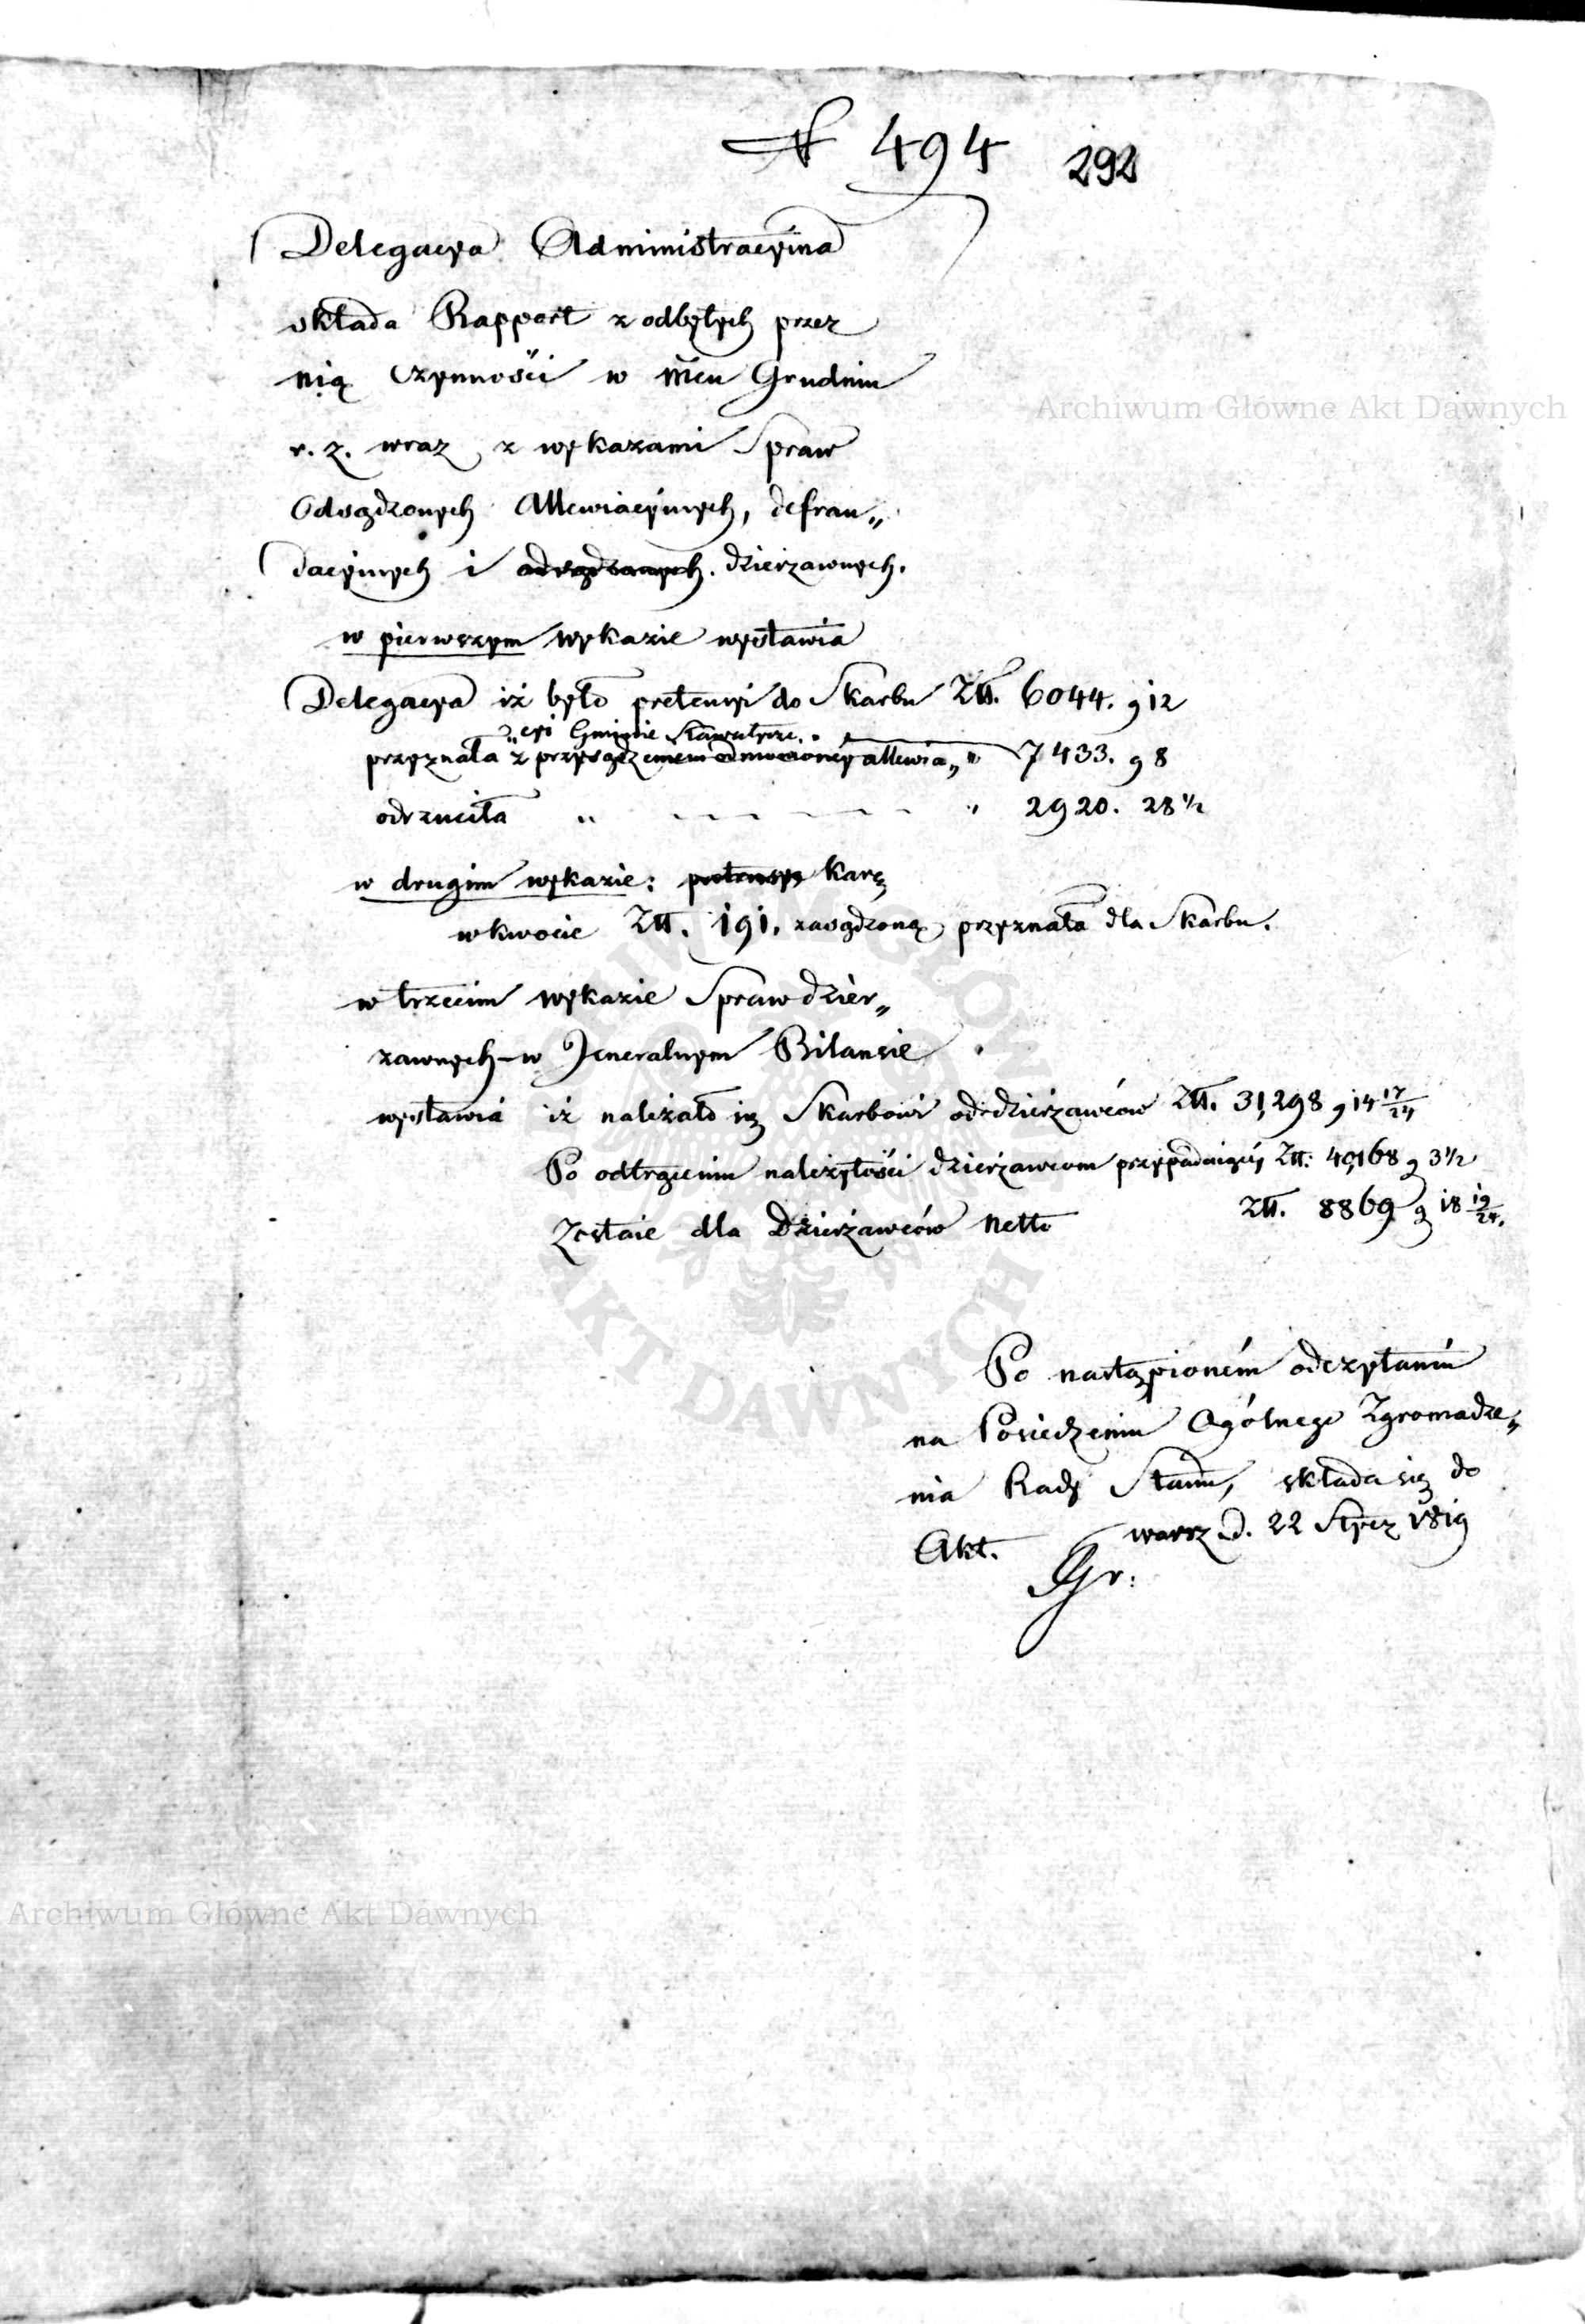 N 494 292
Delegacya Administracyina
składa Rapport z odbytych przez
nią czynności w mcu Grudniu
r. z. wraz z wykazami Spraw
Odsądzonych Allewiacyinych, defrau„
dacyinych i odsądzonych. dzierzawnych.
w pierwszym wykazie wystawia
Delegacya iż było pretensyi do Skarbu Złł. 6044. g 12
„cyi Gminie Sławatycze.
przyznała z przysądzeniem odmówionéy allewia„ „ 7433. g 8
odrzuciła „ „ 2920. 28 ½
w drugim wykazie: pretensye karę
w kwocie Złł. 191. zasądzoną przyznała dla Skarbu.
w trzecim wykazie Spraw dzier„
zawnych – w Jeneralnym Bilansie
wystawia iż należało się Skarbowi od dzierżawców Złł. 31,298 g 14 17/24
Po odtrąceniu należytości dzierżawcom przypadaiącéy Złł: 40,168 g 3 ½
Zostaie dla Dzierżawców netto Złł. 8869 g 18 19/24.
Po nastąpioném odczytaniu
na Posiedzeniu Ogólnego Zgromadze„
nia Rady Stanu, składa się do
Akt. warsz d. 22 Stycz 1819
Gr:
Archiwum Główne Akt Dawnych
Archiwum Główne Akt Dawnych
ARCHIWUM GŁÓWNE AKT DAWNYCH